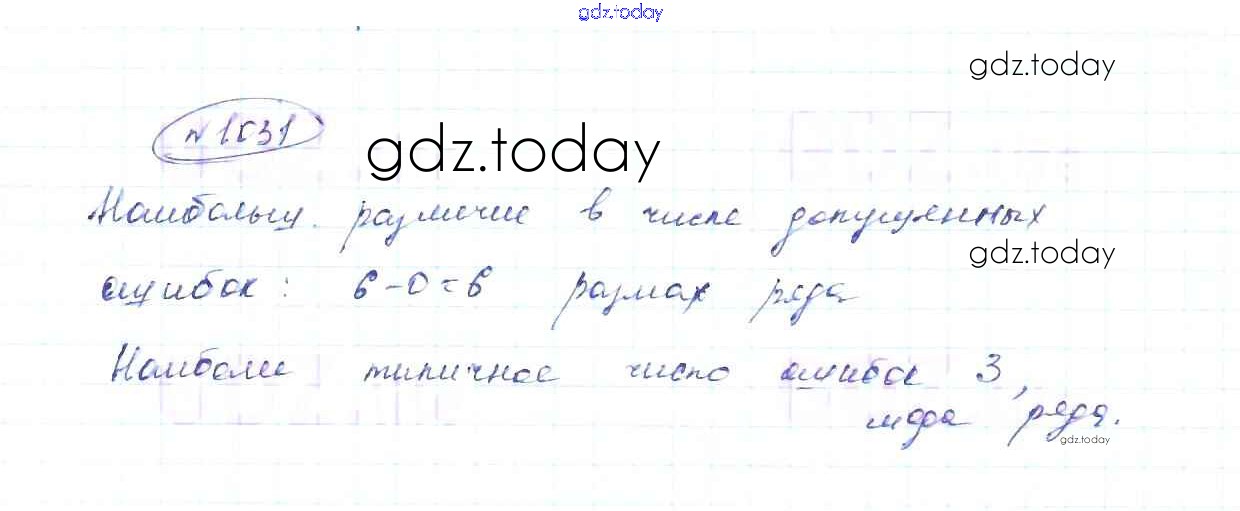 gdz.today
gdz.today
№ 1031
gdz.today
Наибольш. различие в числе допущенных
gdz.today
ошибок: 6-0=6 размах ряда
Наиболее типичное число ошибок 3,
мода ряда.
gdz.today